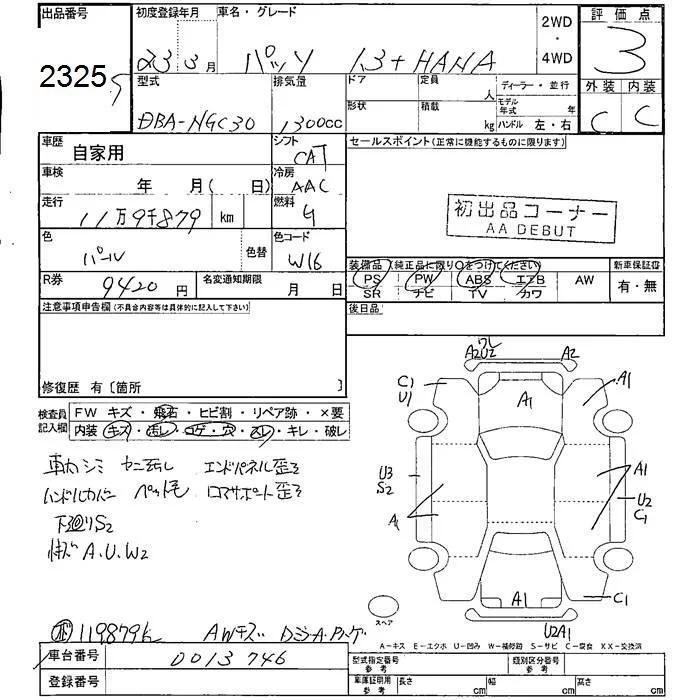 出品番号 初度登録年月 車名・グレード 2WD・4WD 評価点
2325 23 3月 パッソ 1.3+HANA 3
型式 排気量 ドア 定員 人 ディーラー・並行 外装 内装
DBA-NGC30 1300cc 形状 積載 kg モデル年式 年 ハンドル 左・右 C C
車歴 自家用 シフト CAT セールスポイント(正常に機能するものに限ります)
車検 年 月( 日) 冷房 AAC
走行 11万9千879 km 燃料 G
初出品コーナー
AA DEBUT
色 パール 色替 色コード W16
装備品(純正品に限り○をつけてください) 新車保証書
PS PW ABS エアB AW 有・無
SR ナビ TV カワ
R券 9420円 名変通知期限 月 日
注意事項申告欄(不具合内容等は具体的に記入して下さい) 後日品
修復歴 有〔箇所 〕
検査員記入欄 FW キズ・飛石・ヒビ割・リペア跡・×要
内装 キズ・汚レ・コゲ・穴・スレ・キレ・破レ
車内シミ ヤニ汚レ エンドパネル歪ミ
ハンドルカバー ペット毛 ロアサポート歪ミ
下廻リS2
キズ A.U.W2
ワレ
A2U2 A2
C1 U1 A1 A1
U3 S2 A1 U2 C1
A1
A1 C1
U2A1
スペア
119879k AWキズ
A-キズ E-エクボ U-凹み W-補修跡 S-サビ C-腐食 XX-交換済
車台番号 0013746
登録番号
型式指定番号 参考 類別区分番号 参考
車庫証明用 参考 長さ cm 幅 cm 高さ cm